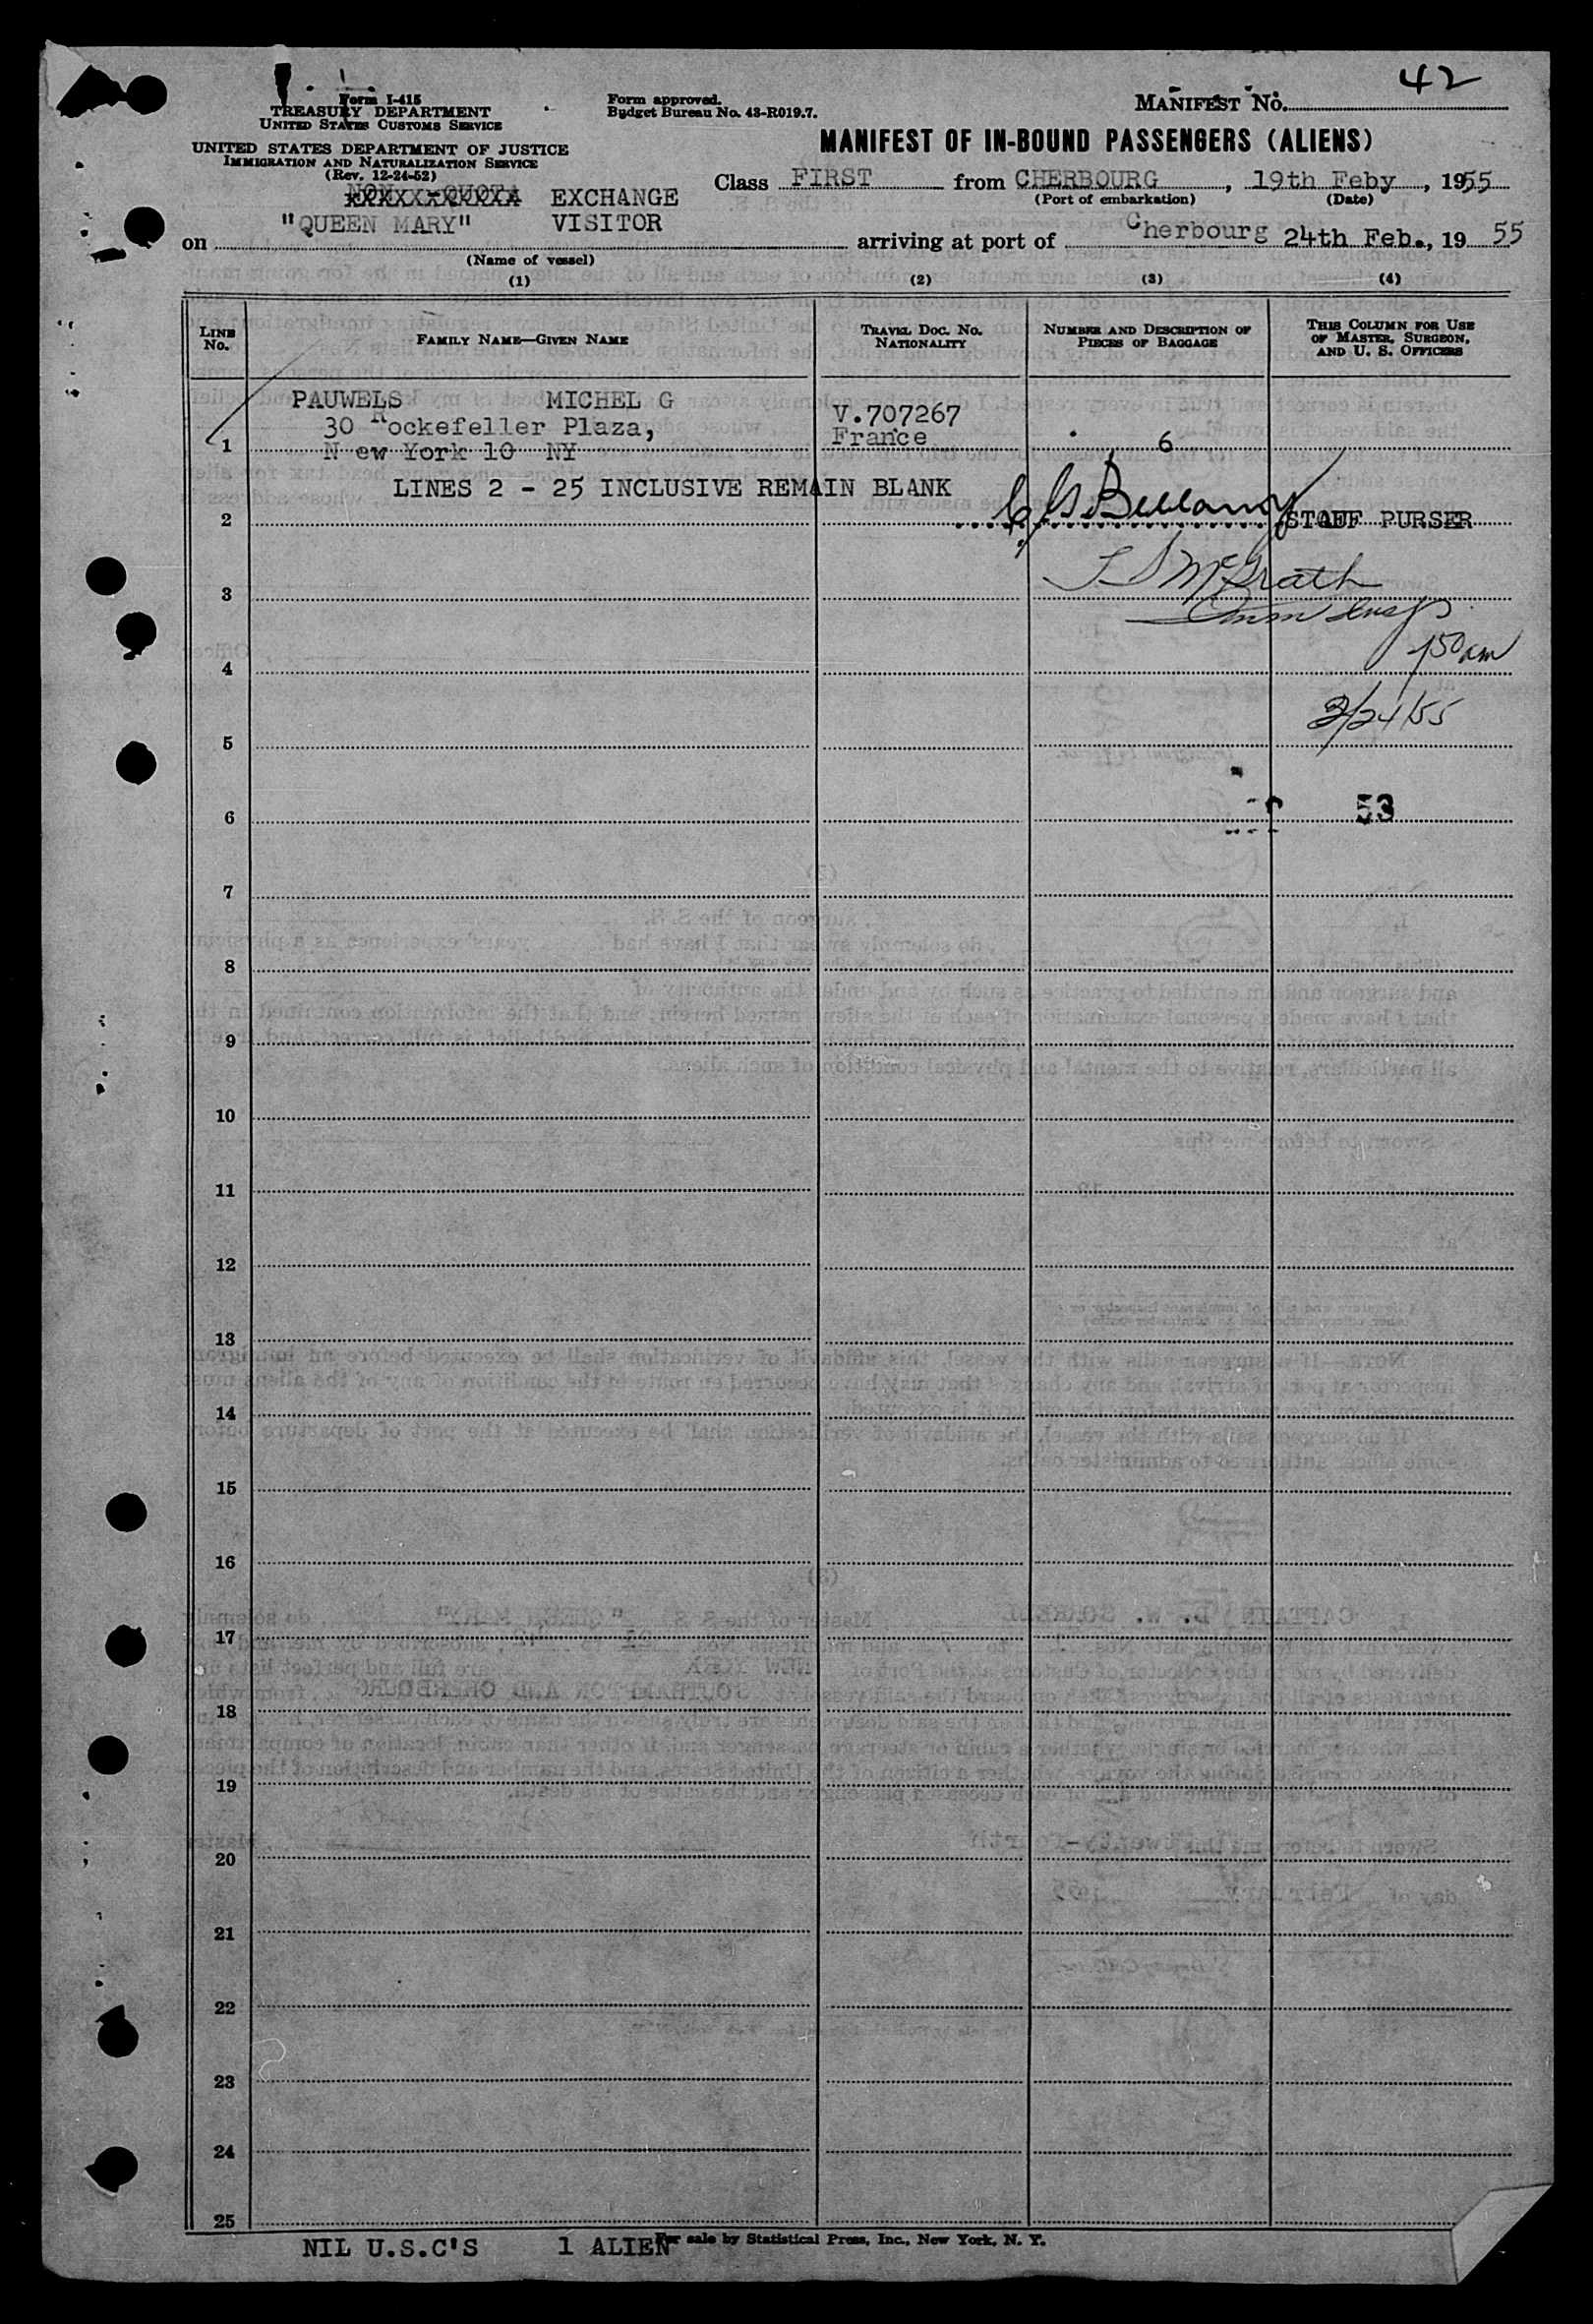 42
Form I-415
TREASURY DEPARTMENT
UNITED STATES CUSTOMS SERVICE
UNITED STATES DEPARTMENT OF JUSTICE
IMMIGRATION AND NATURALIZATION SERVICE
(Rev. 12-24-52)
Form approved.
Budget Bureau No. 43-R019.7.
MANIFEST No.
MANIFEST OF IN-BOUND PASSENGERS (ALIENS)
Class FIRST from CHERBOURG, 19th Feby, 1955
(Port of embarkation) (Date)
EXCHANGE
on "QUEEN MARY" VISITOR arriving at port of Cherbourg 24th Feb., 19 55
(Name of vessel)
(1) (2) (3) (4)
LINE No. FAMILY NAME—GIVEN NAME TRAVEL DOC. No. NATIONALITY NUMBER AND DESCRIPTION OF PIECES OF BAGGAGE THIS COLUMN FOR USE OF MASTER, SURGEON, AND U. S. OFFICERS
PAUWELS MICHEL G V.707267
30 Rockefeller Plaza, France
1 N ew York 10 NY 6
LINES 2 - 25 INCLUSIVE REMAIN BLANK
2 Bellamy STAFF PURSER
3 McGrath
4 150am
2/24/55
5
6 53
7
8
9
10
11
12
13
14
15
16
17
18
19
20
21
22
23
24
25
NIL U.S.C'S 1 ALIEN For sale by Statistical Press, Inc., New York, N. Y.